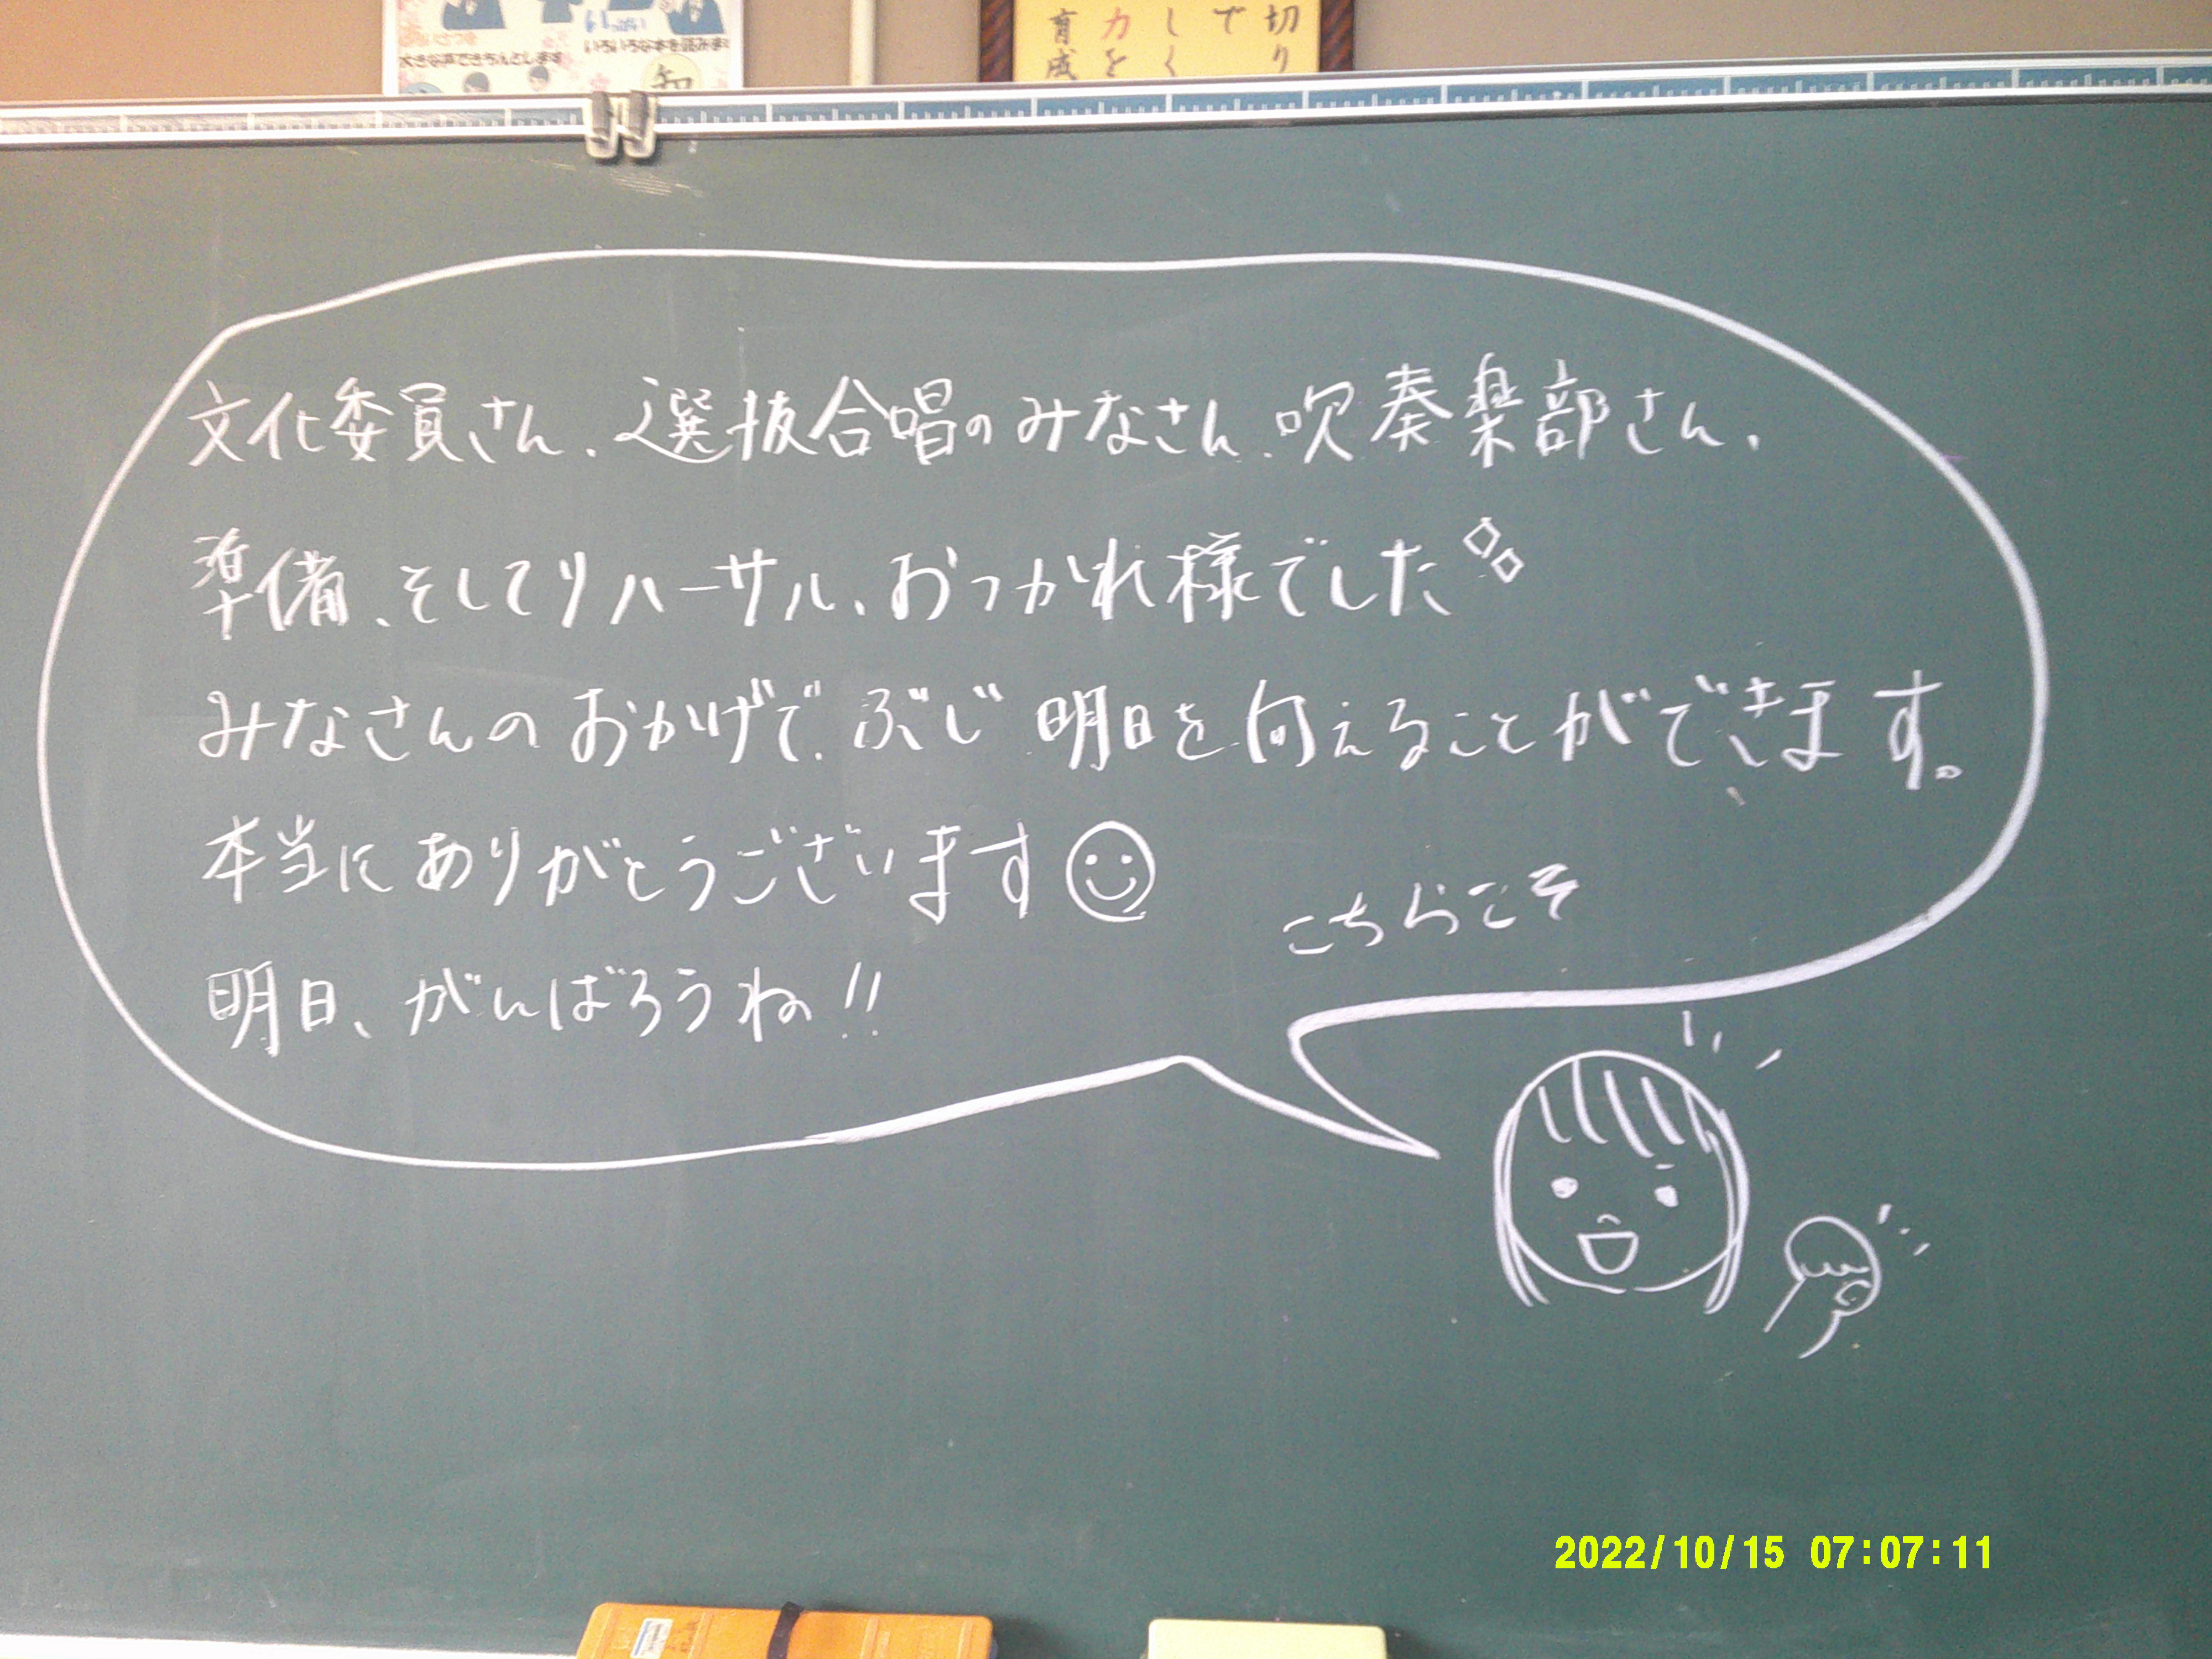 いろいろな本を読みま
大きな声できちんとします
知
切り
で
しく
力を
育成
文化委員さん、選抜合唱のみなさん、吹奏楽部さん、
準備、そしてリハーサル、おつかれ様でした
みなさんのおかげで、ぶじ明日を向えることができます。
本当にありがとうございます
こちらこそ
明日、がんばろうね!!
2022/10/15 07:07:11